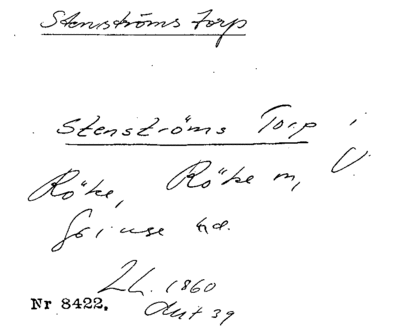 Stenströms Torp
Stenströms Torp i
Röke, Röke sn, V.
Göinge hd.
LL. 1860
Nr 8422.